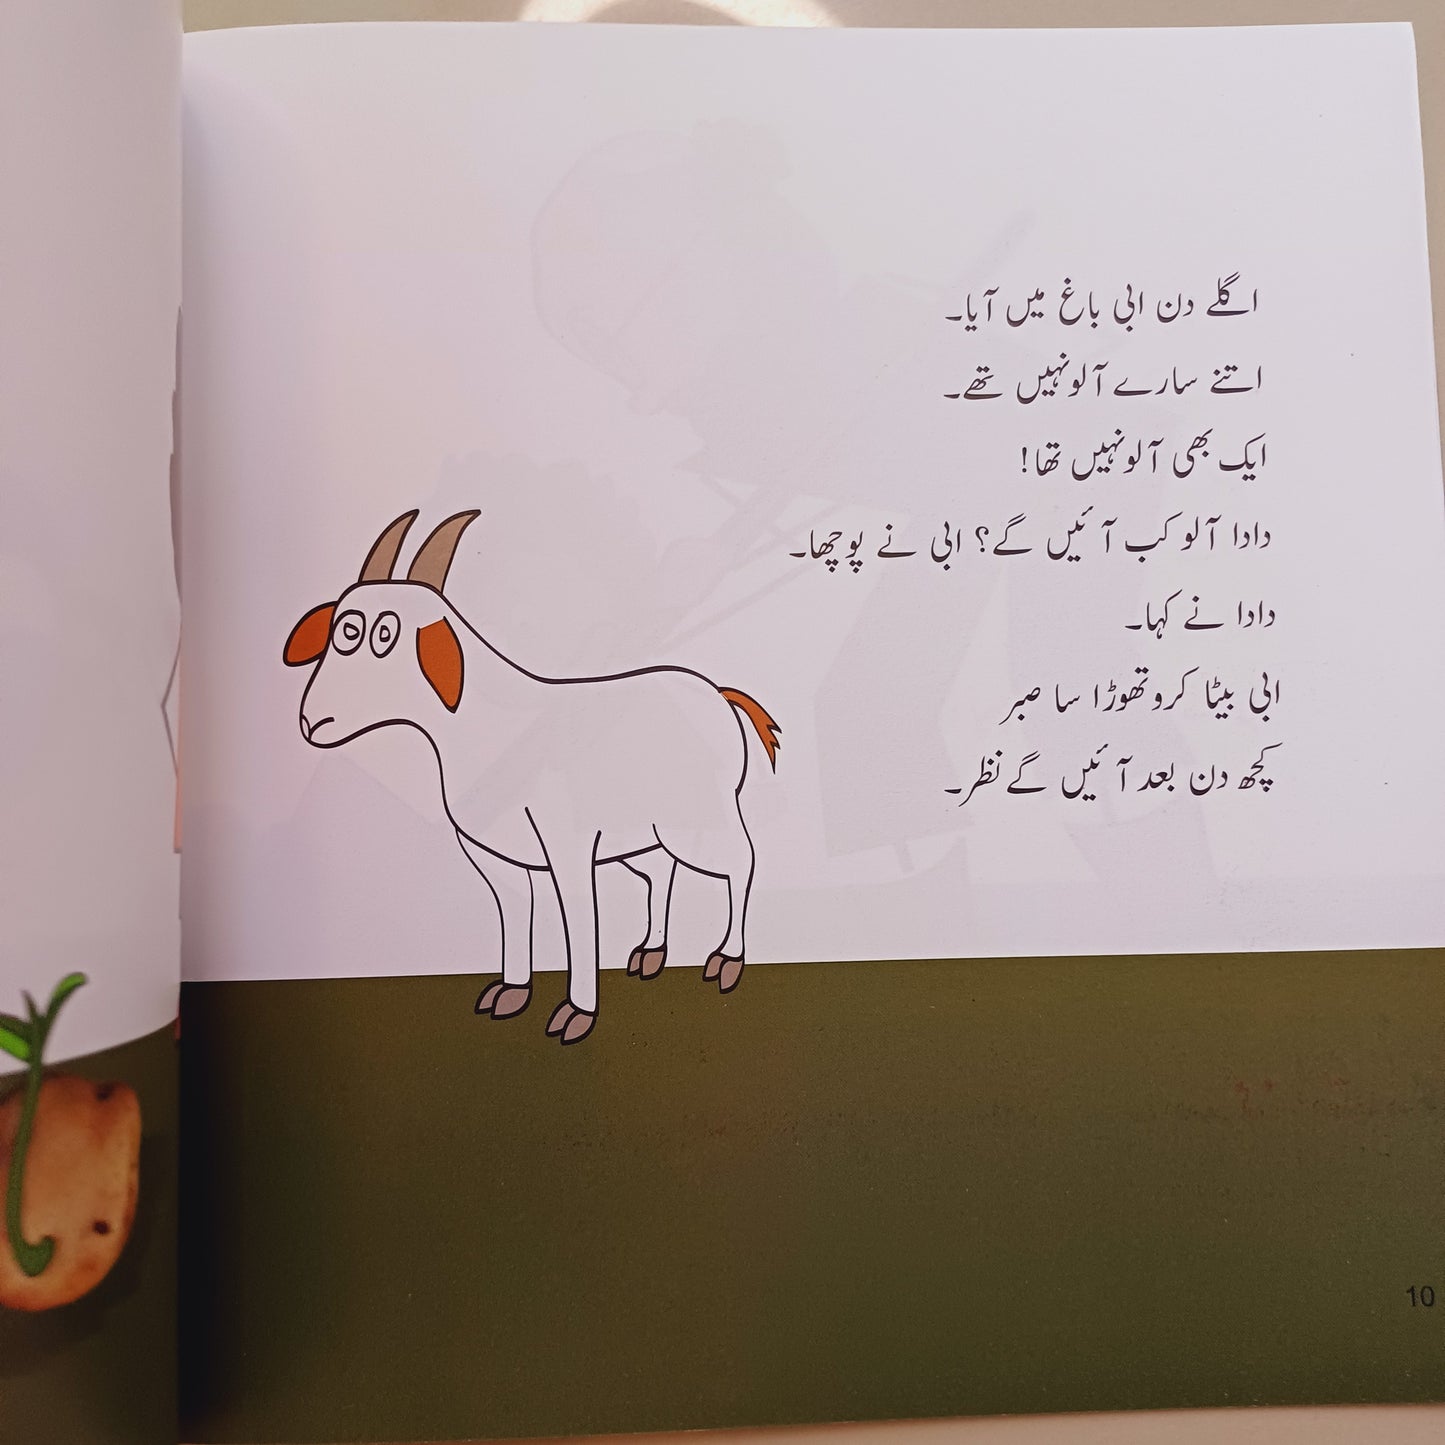 اگلے دن ابی باغ میں آیا۔
اتنے سارے آلو نہیں تھے۔
ایک بھی آلو نہیں تھا!
دادا آلو کب آئیں گے؟ ابی نے پوچھا۔
دادا نے کہا۔
ابی بیٹا کرو تھوڑا سا صبر
کچھ دن بعد آئیں گے نظر۔
10